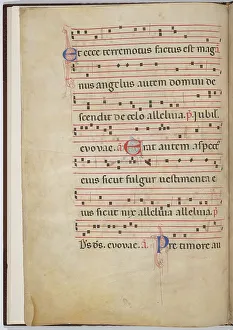 Et ecce terremotus factus est mag
nus angelus autem domini de
scendit de celo alleluia. p. iubil.
evovae. a Erat autem aspect
eius sicut fulgur vestimenta e
ius sicut nix alleluia alleluia. p
evovae. a Pre timore au